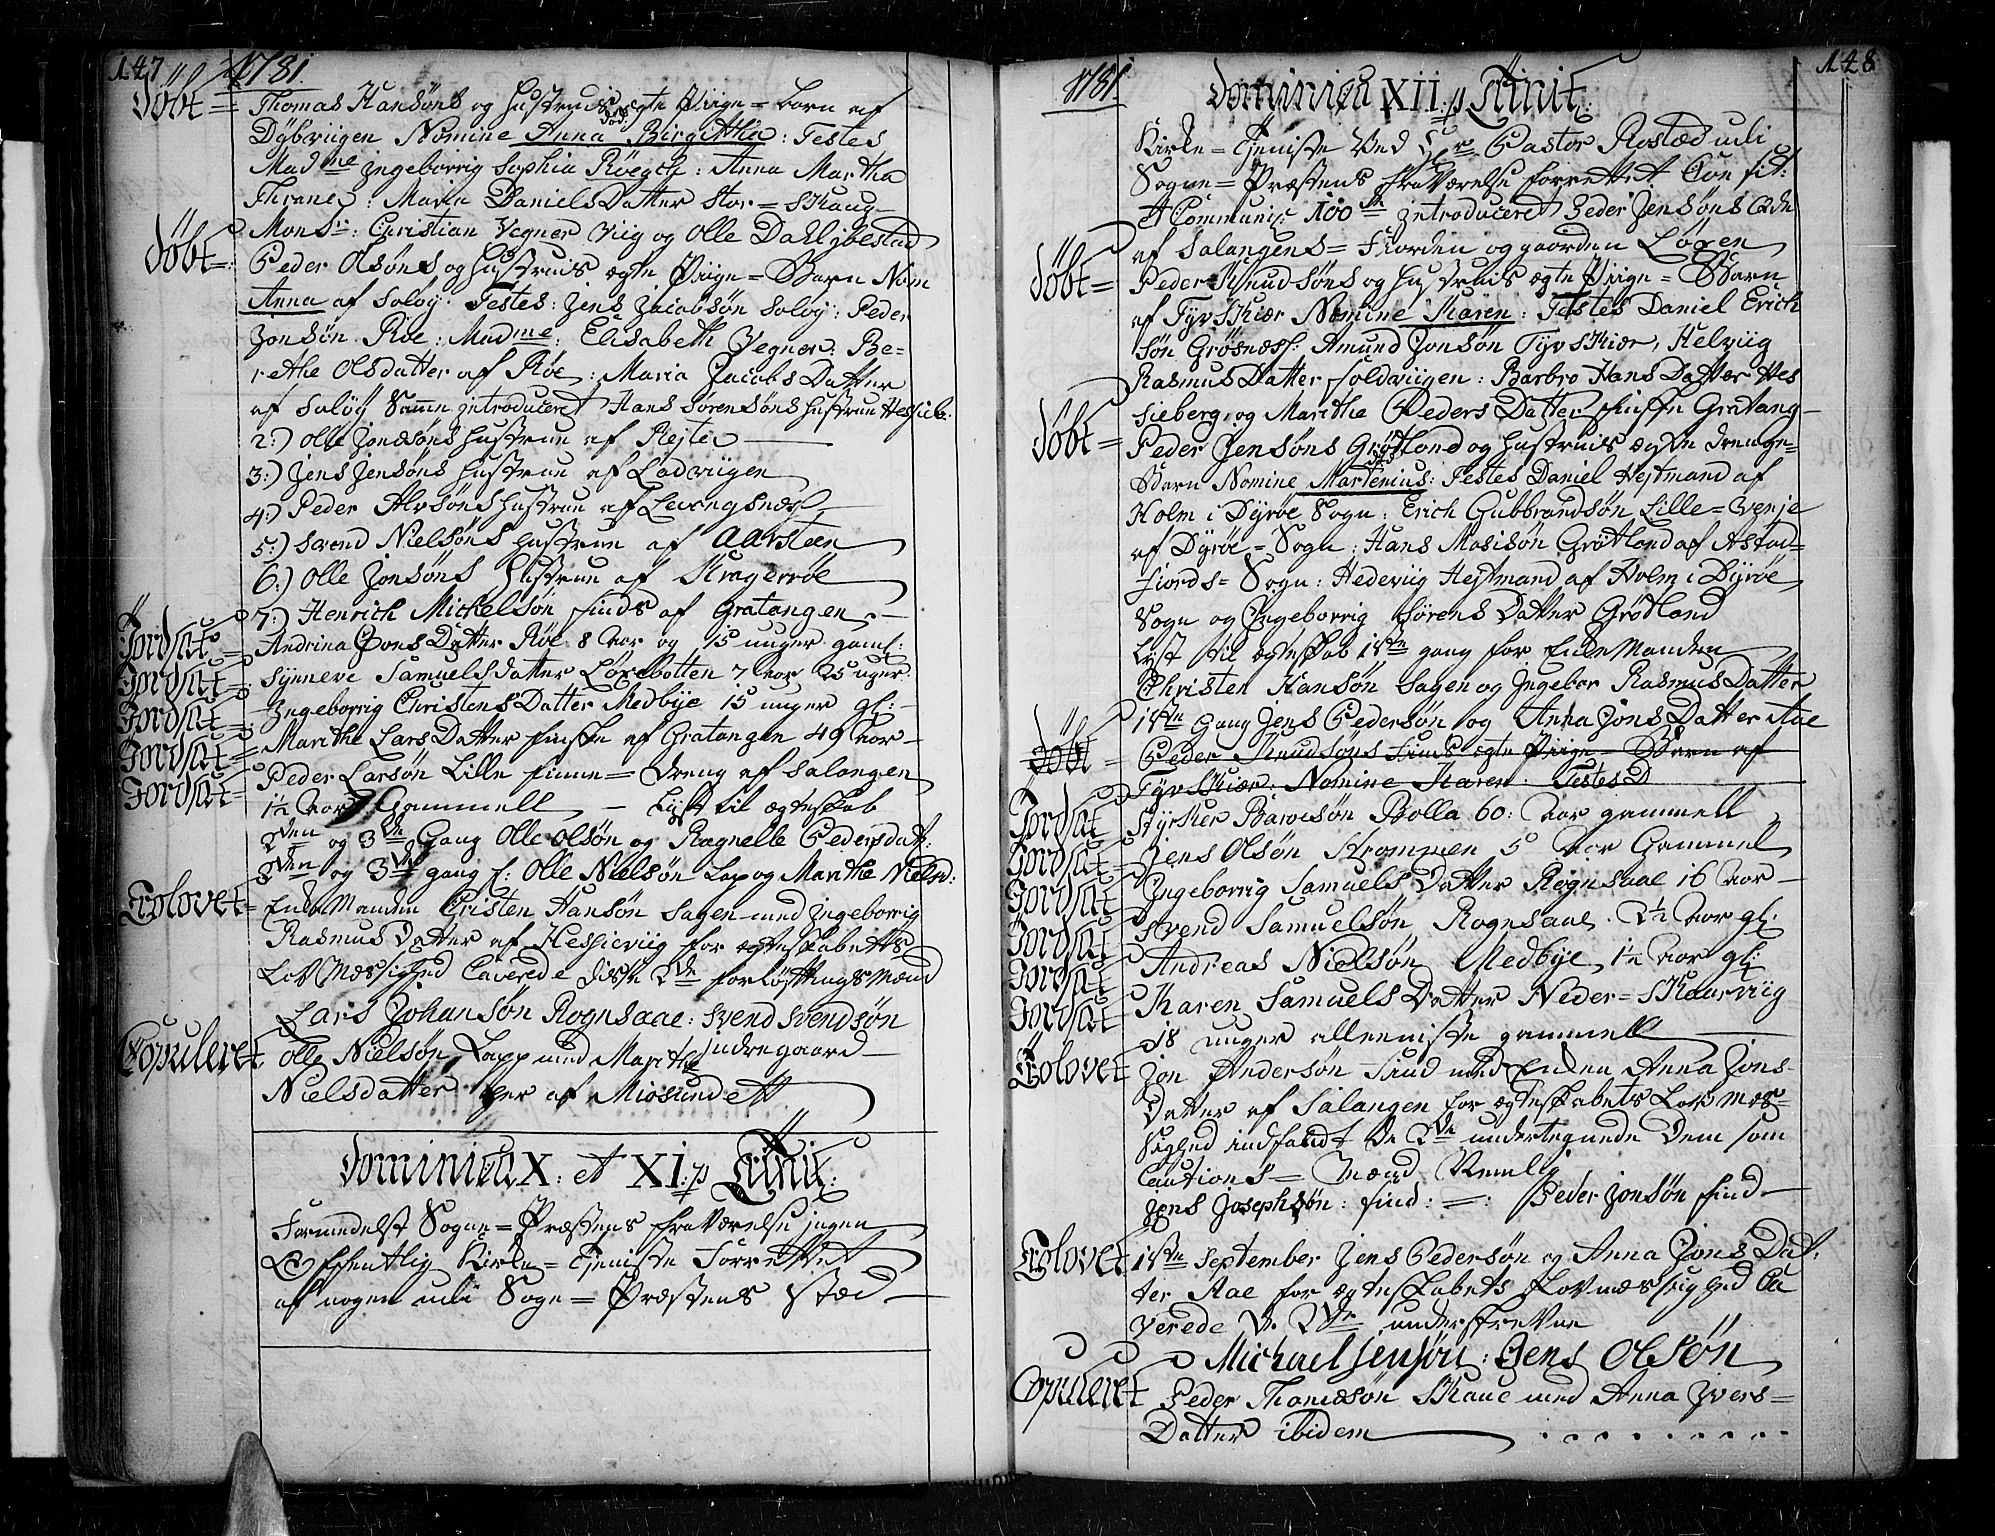 147 1781
Döbt = Thomas Hansöns og hustruis egte Piige = barn af
Död:
Dybviigen Nomine Anna Birgitha: Testes
Mad me Ingeborrig Sophia Röegh: Anna Martha
Thrane: Maria Daniels Datter Stor = Skaug
Mons r: Christian Vegner Viig og Olle Dahl ybestad
Döbt =: Peder Olsöns og hustruis egte Piige = Barn Nom
Anna af Salöy: Testes: Jens Jacobsön Salöy: Peder
Jonsön Röe: Mad me: Elisabeth Vegner: Be=
rethe Olsdatter af Röe: Maria Jacobs Datter
af Salöy Samme introduceret Hans Sörensöns hustrue
2:) Olle Jonæsöns hustrue af
3:) Jens Jensöns hustrue af Ladviigen
4:) Peder Alvsöns hustrue af Levangsnæs
5:) Svend Nielsöns hustrue af Aarsteen
6:) Olle Jonsöns hustrue af Kragerröe
7:) Henrich Michelsön finds af Gratangen
Jordsat = Andrina Jons Datter Röe 8 aar og 15 uuger gaml:
Jordsat =: Synneve Samuels datter Löxebotten 7 aar 25 uger
Jordsat =: Ingeborrig Christens Datter Medbye 15 uuger gl:
Jordsat = Marithe Lars Datter finske af Gratangen 49 aar
Jordsat = Peder Larsön Lille finne = dreng af Salangen
1½ aar Gammell — Lyst til egteskab
2den og 3de Gang Olle Olsön og Ragnelle Pedersdat:
2den og 3de gang f: Olle Nielsön Lap og Marithe Nielsd:
Trolovet = Enke Manden Cristen Hansön Sagen med Ingeborrig
Rasmus Datter af Hessieviig for egteskabetts
Lov Mæssighed Caverede disse 2de forlöftningsmænd
Lars Johansön Rognsaae: Svend Svendsön
Indregaard
Copuleret Olle Nielsön Lapp med Marithe
Nielsdatter her af Miosundett
Dominica X: et XI: p Trinit:
Formedelst Sogne = Præstens fraværelse ingen
Offentlig Kirke = Tieniste Forrettet
af nogen udi Sogne = Præstens Stæd
1781 148
Dominica XII: p Trinit:
Kirke = Tieniste Ved Hr Pastor Rostæd udi
Sogne = Præstens fraværelse forrettet Con fit:
et Communic: 100 introduceret Peder Jensöns Ede
af Salangens = Fiorden og gaarden Löxen
Döbt = Peder Knudsöns og hustruis egte Piige = Barn
af Tyvskiær Nomine Karen: Testes Daniel Erich
sön Grösnæss: Amund Jonsön Tyvskiær, Helviig
Rasmus Datter Foldviigen: Barbro Hans Datter Hes
sieberg, og Marithe Peders Datter finske Gratang
Döbt = Peder Jensöns Grötland og hustruis egte drenge=
Barn Nomine Martenius: Testes Daniel Hejtmand af
Holm i Dyröe Sogn: Erich Gubbrandsön Lille = Venje
af Dyröe = Sogn: Hans Mosisön Grötland af Astad=
fiords = Sogn: Hedeviig Hejtmand af Holm i Dyröe
Sogn og Ingeborrig Sörens Datter Grötland
Lyst til egteskab 1ste gang for Enke Manden
Christen Hansön Sagen og Ingebor Rasmus Datter
1ste Gang Jens Pedersön og Anna Jons Datter Aae
Döbt = Peder Knudsöns Finds egte Piige = Barn af
Tyvskiær: Nomine Karen: Testes D
Jordsat Styrker Baroisön Bolla 60: aar gammell
Jordsat Jens Olsön Krommen 5 aar Gammel
Jordsat Ingeborrig Samuels Datter Rognsaae 16 aar
Jordsat Svend Samuelsön Rognsaae 2½ aar gl:
Jordsat Andreas Nielsön Medbye 1½ aar gl:
Jordsat Karen Samuels Datter Neder = Skaarviig
18 uuger alleeniste gammell
Trolovet Jon Andersön Find med Enken Anna Jons
Datter af Salangen for egteskabets Lov Mæs=
sighed indfandt de 2de undertegnede Dem som
Cautions = Mænd Nemlig
Jens Josephsön: find: =: Peder Jonsön find
Trolovet 1ste September Jens Pedersön og Anna Jons Dat
ter Aae for egteskabets Lovmæssighed Ca
verede De 2de underskrevne
Michael Jensön: Jens Olsön
Copuleret Peder Thomæsön Skaue med Anna Ivers=
Datter ibidem